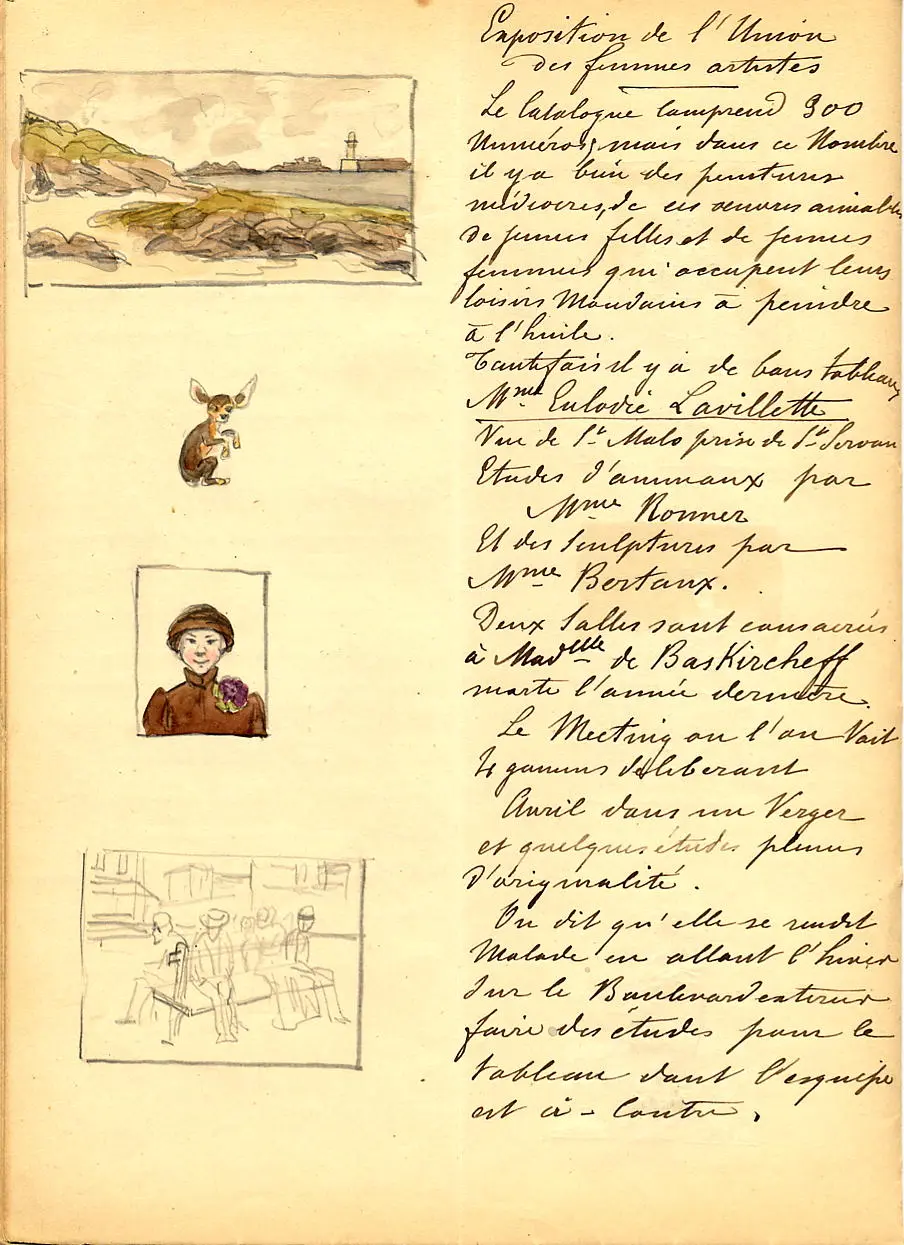 Exposition de l'Union
des femmes artistes
Le Catalogue comprend 300
Numéros, mais dans ce Nombre
il y a bien des peintures
médiocres, de ces oeuvres aimables
de jeunes filles et de jeunes
femmes qui occupent leurs
loisirs Mondains à peindre
à l'huile.
Toutefois il y a de bons tableaux
Mme Eulodie Lavillette
Vue de St Malo prise de St Servan
Etudes d'animaux par
Mme Ronner
Et des Sculptures par
Mme Bertaux.
Deux Salles sont consacrées
à Madelle de BasKircheff
morte l'année dernière.
Le Meeting ou l'on Voit
4 gamins déliberant
Avril dans un Verger
et quelques études pleines
d'originalité.
On dit qu'elle se rendit
Malade en allant l'hiver
Sur le Boulevard exterieur
faire des études pour le
tableau dont l'esquise
est ci-Contre,